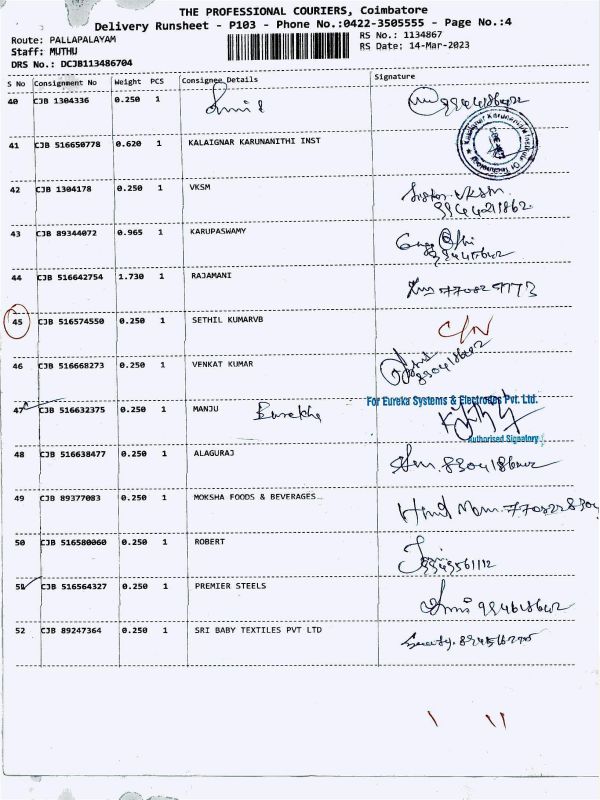 THE PROFESSIONAL COURIERS, Coimbatore
Delivery Runsheet - P103 - Phone No.:0422-3505555 - Page No.:4
Route: PALLAPALAYAM
Staff: MUTHU
DRS No.: DCJB113486704
RS No.: 1134867
RS Date: 14-Mar-2023
S No Consignment No Weight PCS Consignee Details Signature
40 CJB 1304336 0.250 1
41 CJB 516650778 0.620 1 KALAIGNAR KARUNANITHI INST
Kalaignar Karunanidhi Institute Of Technology
42 CJB 1304178 0.250 1 VKSM
9944421862
43 CJB 89344072 0.965 1 KARUPASWAMY
44 CJB 516642754 1.730 1 RAJAMANI
45 CJB 516574550 0.250 1 SETHIL KUMARVB C/N
46 CJB 516668273 0.250 1 VENKAT KUMAR
47 CJB 516632375 0.250 1 MANJU
For Eureka Systems & Electrodes Pvt. Ltd.
Authorised Signatory
48 CJB 516638477 0.250 1 ALAGURAJ
49 CJB 89377083 0.250 1 MOKSHA FOODS & BEVERAGES…
50 CJB 516580060 0.250 1 ROBERT
9943561112
51 CJB 516564327 0.250 1 PREMIER STEELS
52 CJB 89247364 0.250 1 SRI BABY TEXTILES PVT LTD